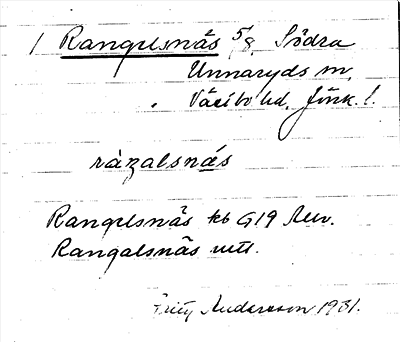 1 Rangelsnäs 5/8 Södra
Unnaryds sn,
Västbo hd, Jönk. l.
ràŋalsnäs
Rangelsnäs kb G19 Auv.
Rangalsnäs utt.
Fritz Andersson 1931.